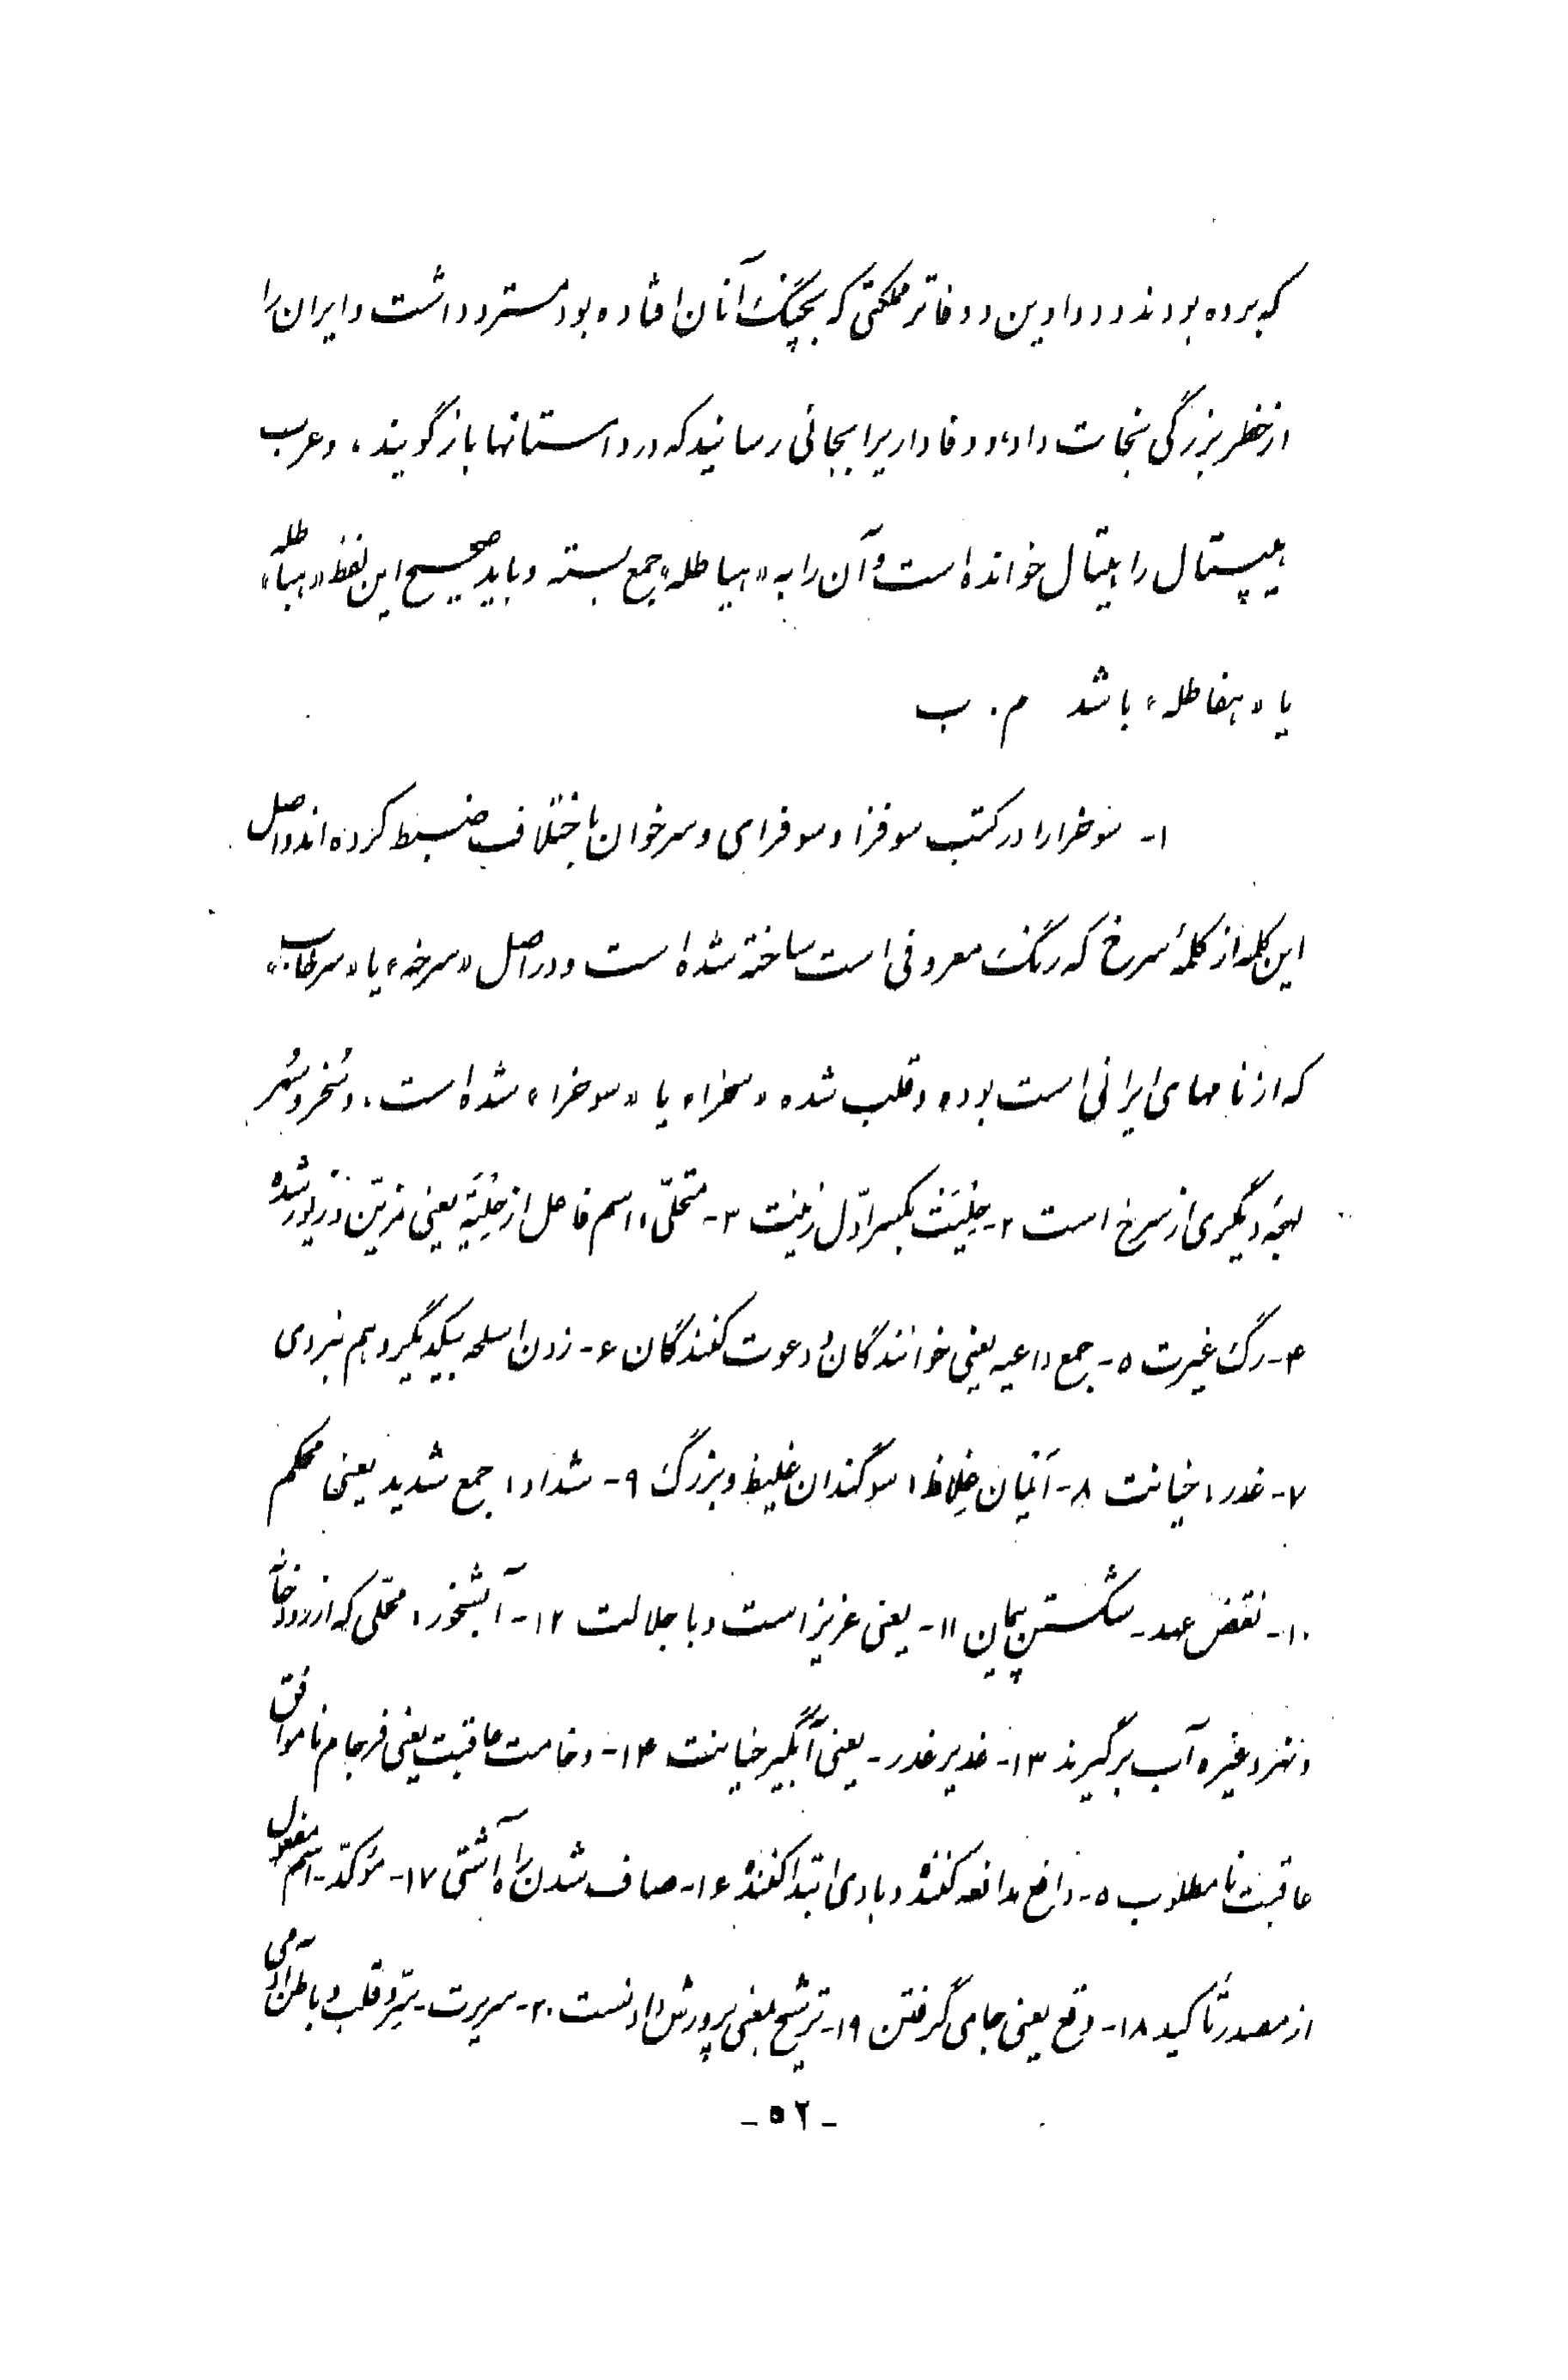 که برده بودند و دواوین و دفاتر مملکتی که بچنگ آنان افتاده بود مسترد داشت و ایران را
از خطر بزرگی نجات داد، و وفاداریرا بجائی رسانید که در داستانها بازگویند، و عرب
هیپتال را هیتال خوانده است و آن را به «هیاطله» جمع بسته و باید صحیح این لفظ «هباطله»
یا «هفاطله» باشد م. ب
۱- سوخرا را در کتب سوفزا و سوفرای و سرخوان باختلاف ضبط کرده‌اند و اصل
این کلمه از کلمهٔ سرخ که رنگ معروفی است ساخته شده است و در اصل «سرخه» یا «سرخاب»
که از نامهای ایرانی است بوده و قلب شده «سخرا» یا «سوخرا» شده است. و سُخر و سُهر
لهجهٔ دیگری از سرخ است ۲- حِلیَت بکسر اوّل زینت ۳- متحلّی: اسم فاعل از حِلیَة یعنی مزیّن و زیور شده
۴- رگ غیرت ۵- جمع داعیه یعنی خوانندگان و دعوت کنندگان ۶- زدن اسلحه بیکدیگر و هم نبردی
۷- غدر: خیانت ۸- اَیمان غِلاظ: سوگندان غلیظ و بزرگ ۹- شداد: جمع شدید یعنی محکم
۱۰- نقض عهد - شکستن پیمان ۱۱- یعنی عزیز است و با جلالت ۱۲- آبشخور: محلّی که از رودخانه
و نهر و غیره آب برگیرند ۱۳- غدیر غدر - یعنی آبگیر خیانت ۱۴- وخامت عاقبت یعنی فرجام ناموافق
عاقبت نامطلوب ۱۵- دافع مدافعه کننده و بادی ابتدا کننده ۱۶- صاف شدن راه آشتی ۱۷- مؤکّد - اسم مفعول
از مصدر تأکید ۱۸- وقع یعنی جای گرفتن ۱۹- ترشیح بمعنی پرورش دادنست ۲۰- سریرت - سِرّ و قلب و باطن آدمی
- ۵۲ -